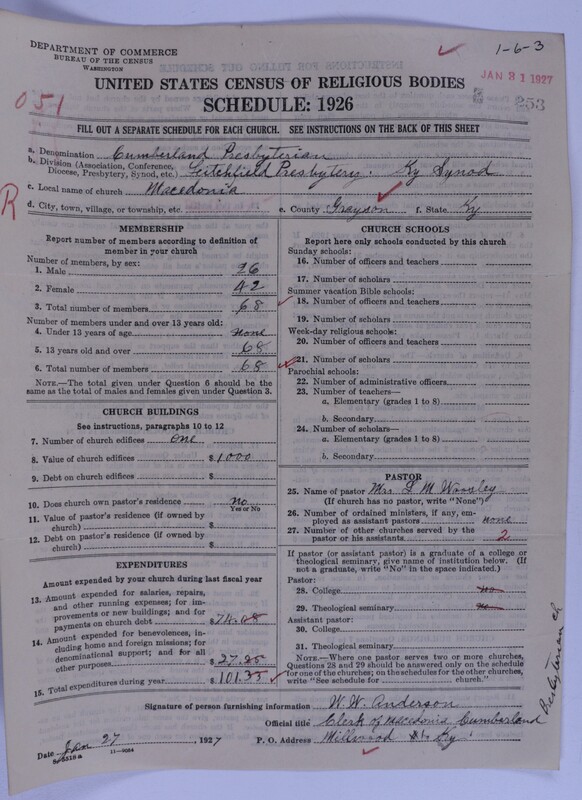 DEPARTMENT OF COMMERCE
BUREAU OF THE CENSUS
WASHINGTON
1-6-3
JAN 31 1927
253
051
UNITED STATES CENSUS OF RELIGIOUS BODIES
SCHEDULE: 1926
FILL OUT A SEPARATE SCHEDULE FOR EACH CHURCH. SEE INSTRUCTIONS ON THE BACK OF THIS SHEET
a. Denomination Cumberland Presbyterian
b. Division (Association, Conference, Diocese, Presbytery, Synod, etc.) Leitchfield Presbytery. Ky Synod
c. Local name of church Macedonia
R
d. City, town, village, or township, etc. e. County Grayson f. State Ky
MEMBERSHIP
Report number of members according to definition of member in your church
Number of members, by sex:
1. Male 26
2. Female 42
3. Total number of members 68
Number of members under and over 13 years old:
4. Under 13 years of age none
5. 13 years old and over 68
6. Total number of members 68
NOTE.—The total given under Question 6 should be the same as the total of males and females given under Question 3.
CHURCH BUILDINGS
See instructions, paragraphs 10 to 12
7. Number of church edifices one
8. Value of church edifices $ 1000
9. Debt on church edifices $
10. Does church own pastor's residence no
Yes or No
11. Value of pastor's residence (if owned by church) $
12. Debt on pastor's residence (if owned by church) $
EXPENDITURES
Amount expended by your church during last fiscal year
13. Amount expended for salaries, repairs, and other running expenses; for improvements or new buildings; and for payments on church debt $
14. Amount expended for benevolences, including home and foreign missions; for denominational support; and for all other purposes $
15. Total expenditures during year $ 101.35
CHURCH SCHOOLS
Report here only schools conducted by this church
Sunday schools:
16. Number of officers and teachers
17. Number of scholars
Summer vacation Bible schools:
18. Number of officers and teachers
19. Number of scholars
Week-day religious schools:
20. Number of officers and teachers
21. Number of scholars
Parochial schools:
22. Number of administrative officers
23. Number of teachers—
a. Elementary (grades 1 to 8)
b. Secondary
24. Number of scholars—
a. Elementary (grades 1 to 8)
b. Secondary
PASTOR
25. Name of pastor Mrs L M Woosley
(If church has no pastor, write "None")
26. Number of ordained ministers, if any, employed as assistant pastors none
27. Number of other churches served by the pastor or his assistants 2
If pastor (or assistant pastor) is a graduate of a college or theological seminary, give name of institution below. (If not a graduate, write "No" in the space indicated.)
Pastor:
28. College no
29. Theological seminary no
Assistant pastor:
30. College
31. Theological seminary
NOTE.—Where one pastor serves two or more churches, Questions 28 and 29 should be answered only on the schedule for one of the churches; on the schedules for the other churches, write "See schedule for church."
Signature of person furnishing information W. W. Anderson
Official title Clerk of Macedonia Cumberland
Presbyterian ch
Date Jan 27, 1927 P. O. Address Millwood Ky
8-5518a 11-9084